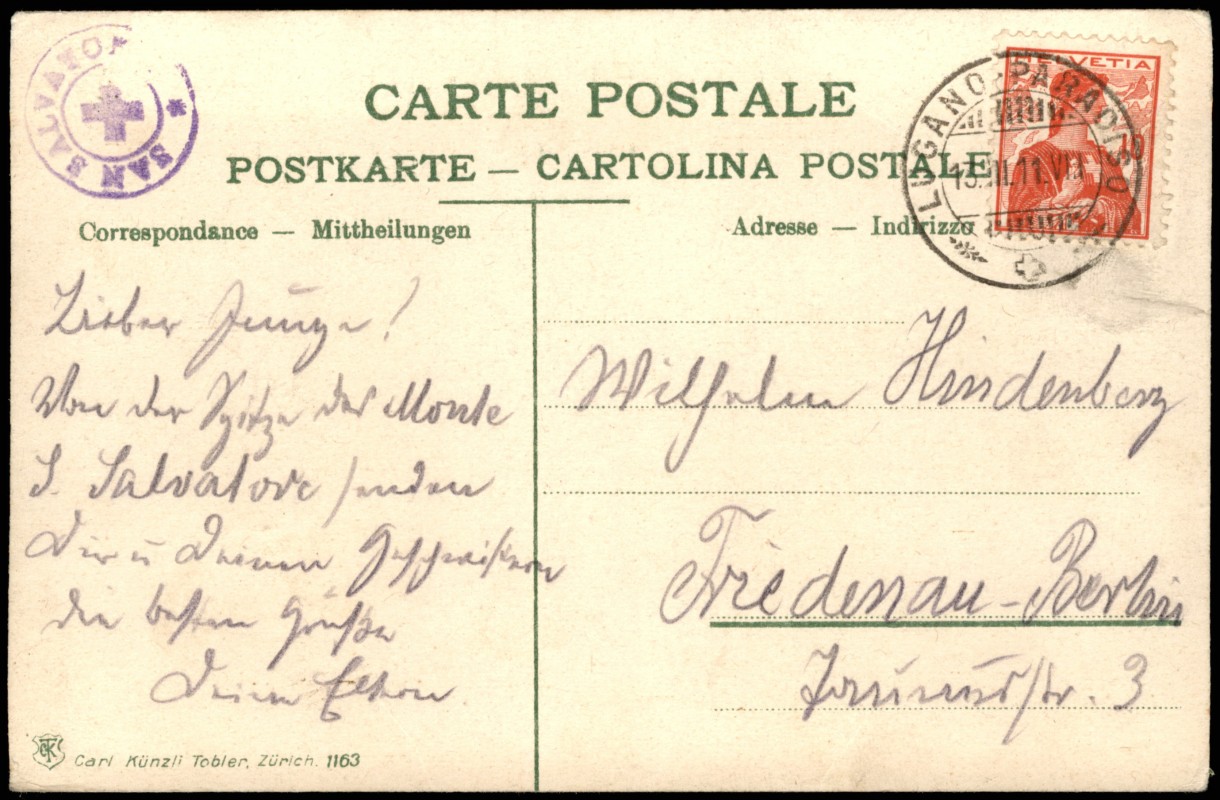 SAN SALVATOR
CARTE POSTALE
POSTKARTE — CARTOLINA POSTALE
HELVETIA
LUGANO-PARADISO
11.VII
Correspondance — Mittheilungen
Adresse — Indirizzo
Lieber Junge!
Von der Spitze des Monte
S. Salvatore senden
Dir u Deinen Geschwistern
die besten Grüße
Deine Eltern.
Wilhelm Hindenberg
Friedenau-Berlin
Taunusstr. 3
CKT
Carl Künzli Tobler, Zürich. 1163